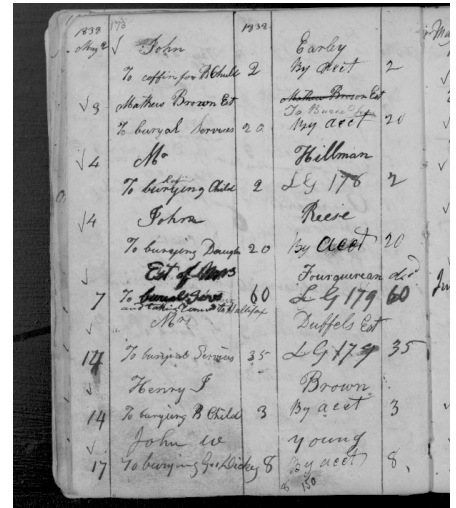 1838 173 1838
May 2 John Earley
To coffin for B Child 2 By acct 2
3 Mathew Brown Est Mathew Brown Est
To buryal Services 20 By acct 20
4 Mr Hillman
To burying Child 2 L G 178 2
4 John Reeve
To burying Daughter 20 By acct 20
Est of Fourqurean
7 To burial Servs 60 L G 179 60
and taking to Halifax
Mr Duffels Est
14 To buryial Services 35 L G 179 35
Henry J Brown
14 To burying B Child 3 By acct 3
John W Young
17 To burying Geo Dickey 8 By acct 8
150